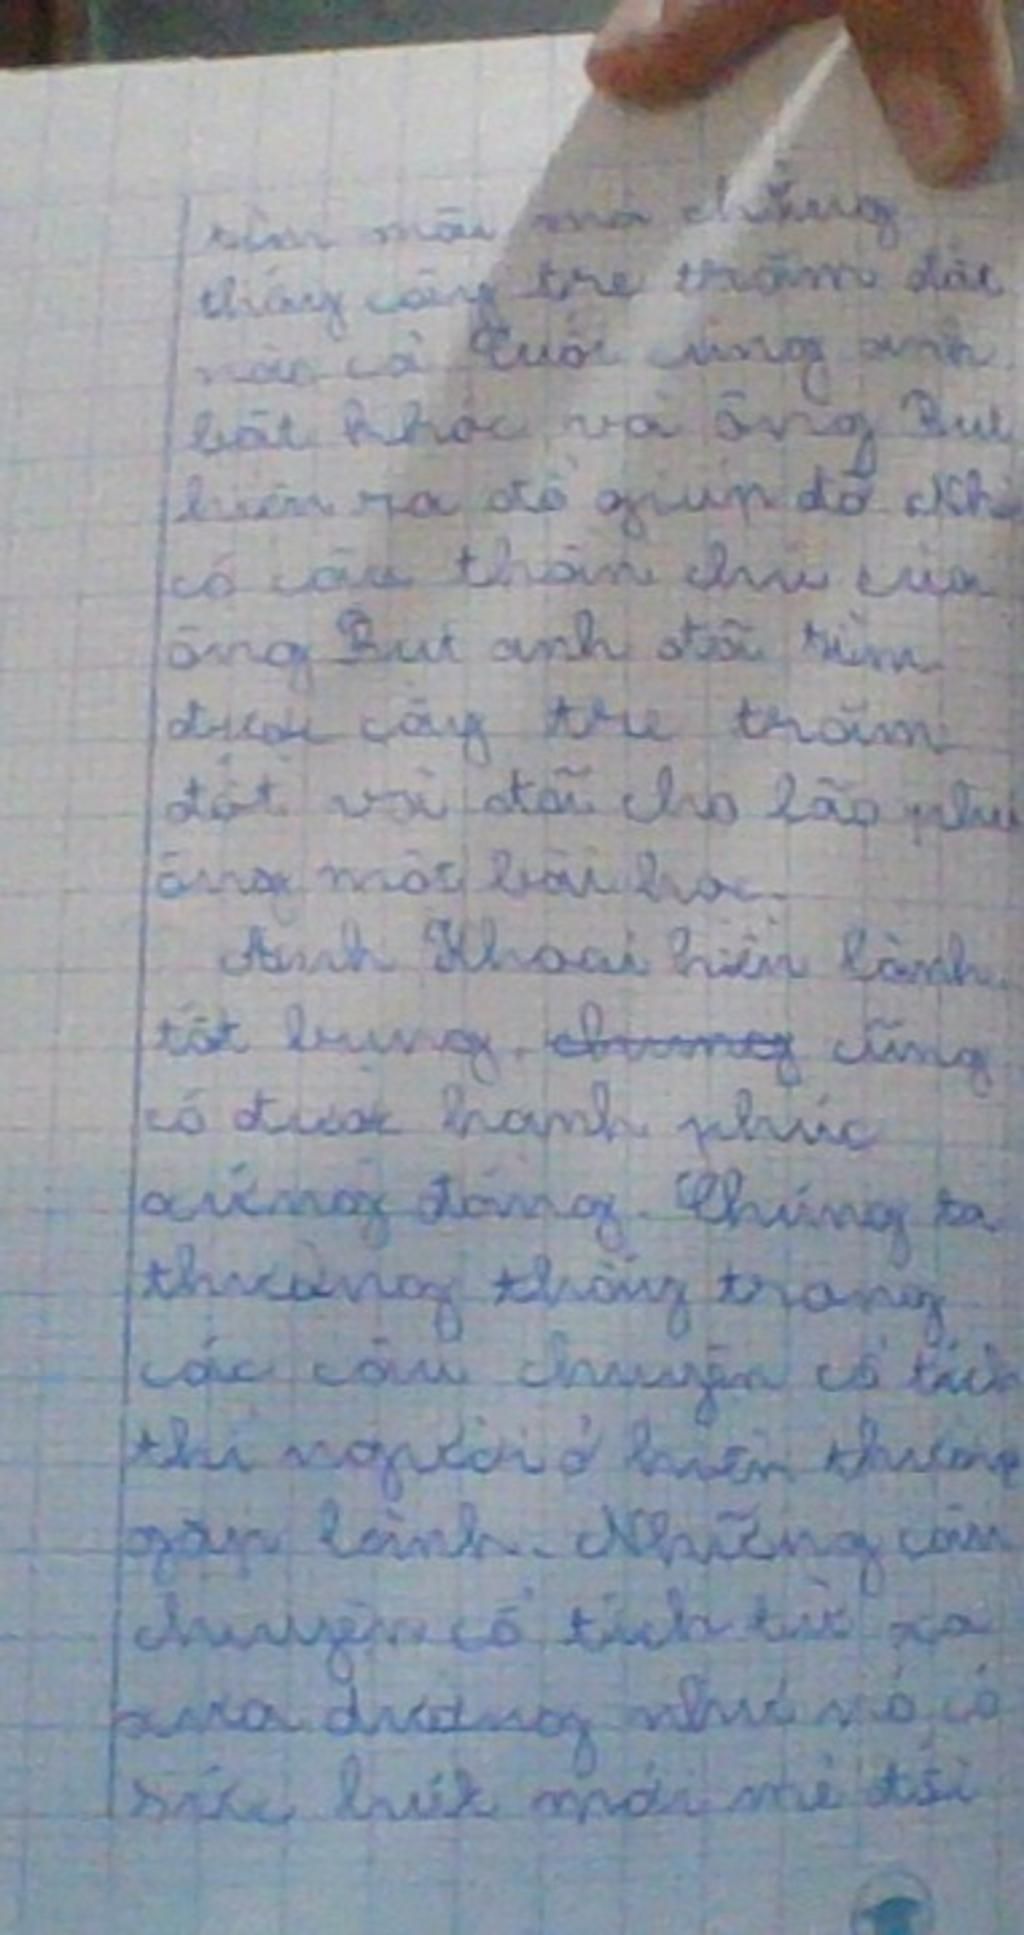 tìm mãi mà chẳng
thấy cây tre trăm đốt
nào cả Cuối cùng anh
bật khóc và ông Bụt
hiện ra để giúp đỡ Nhờ
có câu thần chú của
ông Bụt anh đã tìm
được cây tre trăm
đốt và đã cho lão phú
ông một bài học.
Anh Khoai hiền lành
tốt bụng, cũng
có được hạnh phúc
xứng đáng. Chúng ta
thường thấy trong
các câu chuyện cổ tích
thì người ở hiền thường
gặp lành. Những câu
chuyện cổ tích từ xa
xưa dường như nó có
sức hút mới mẻ đối